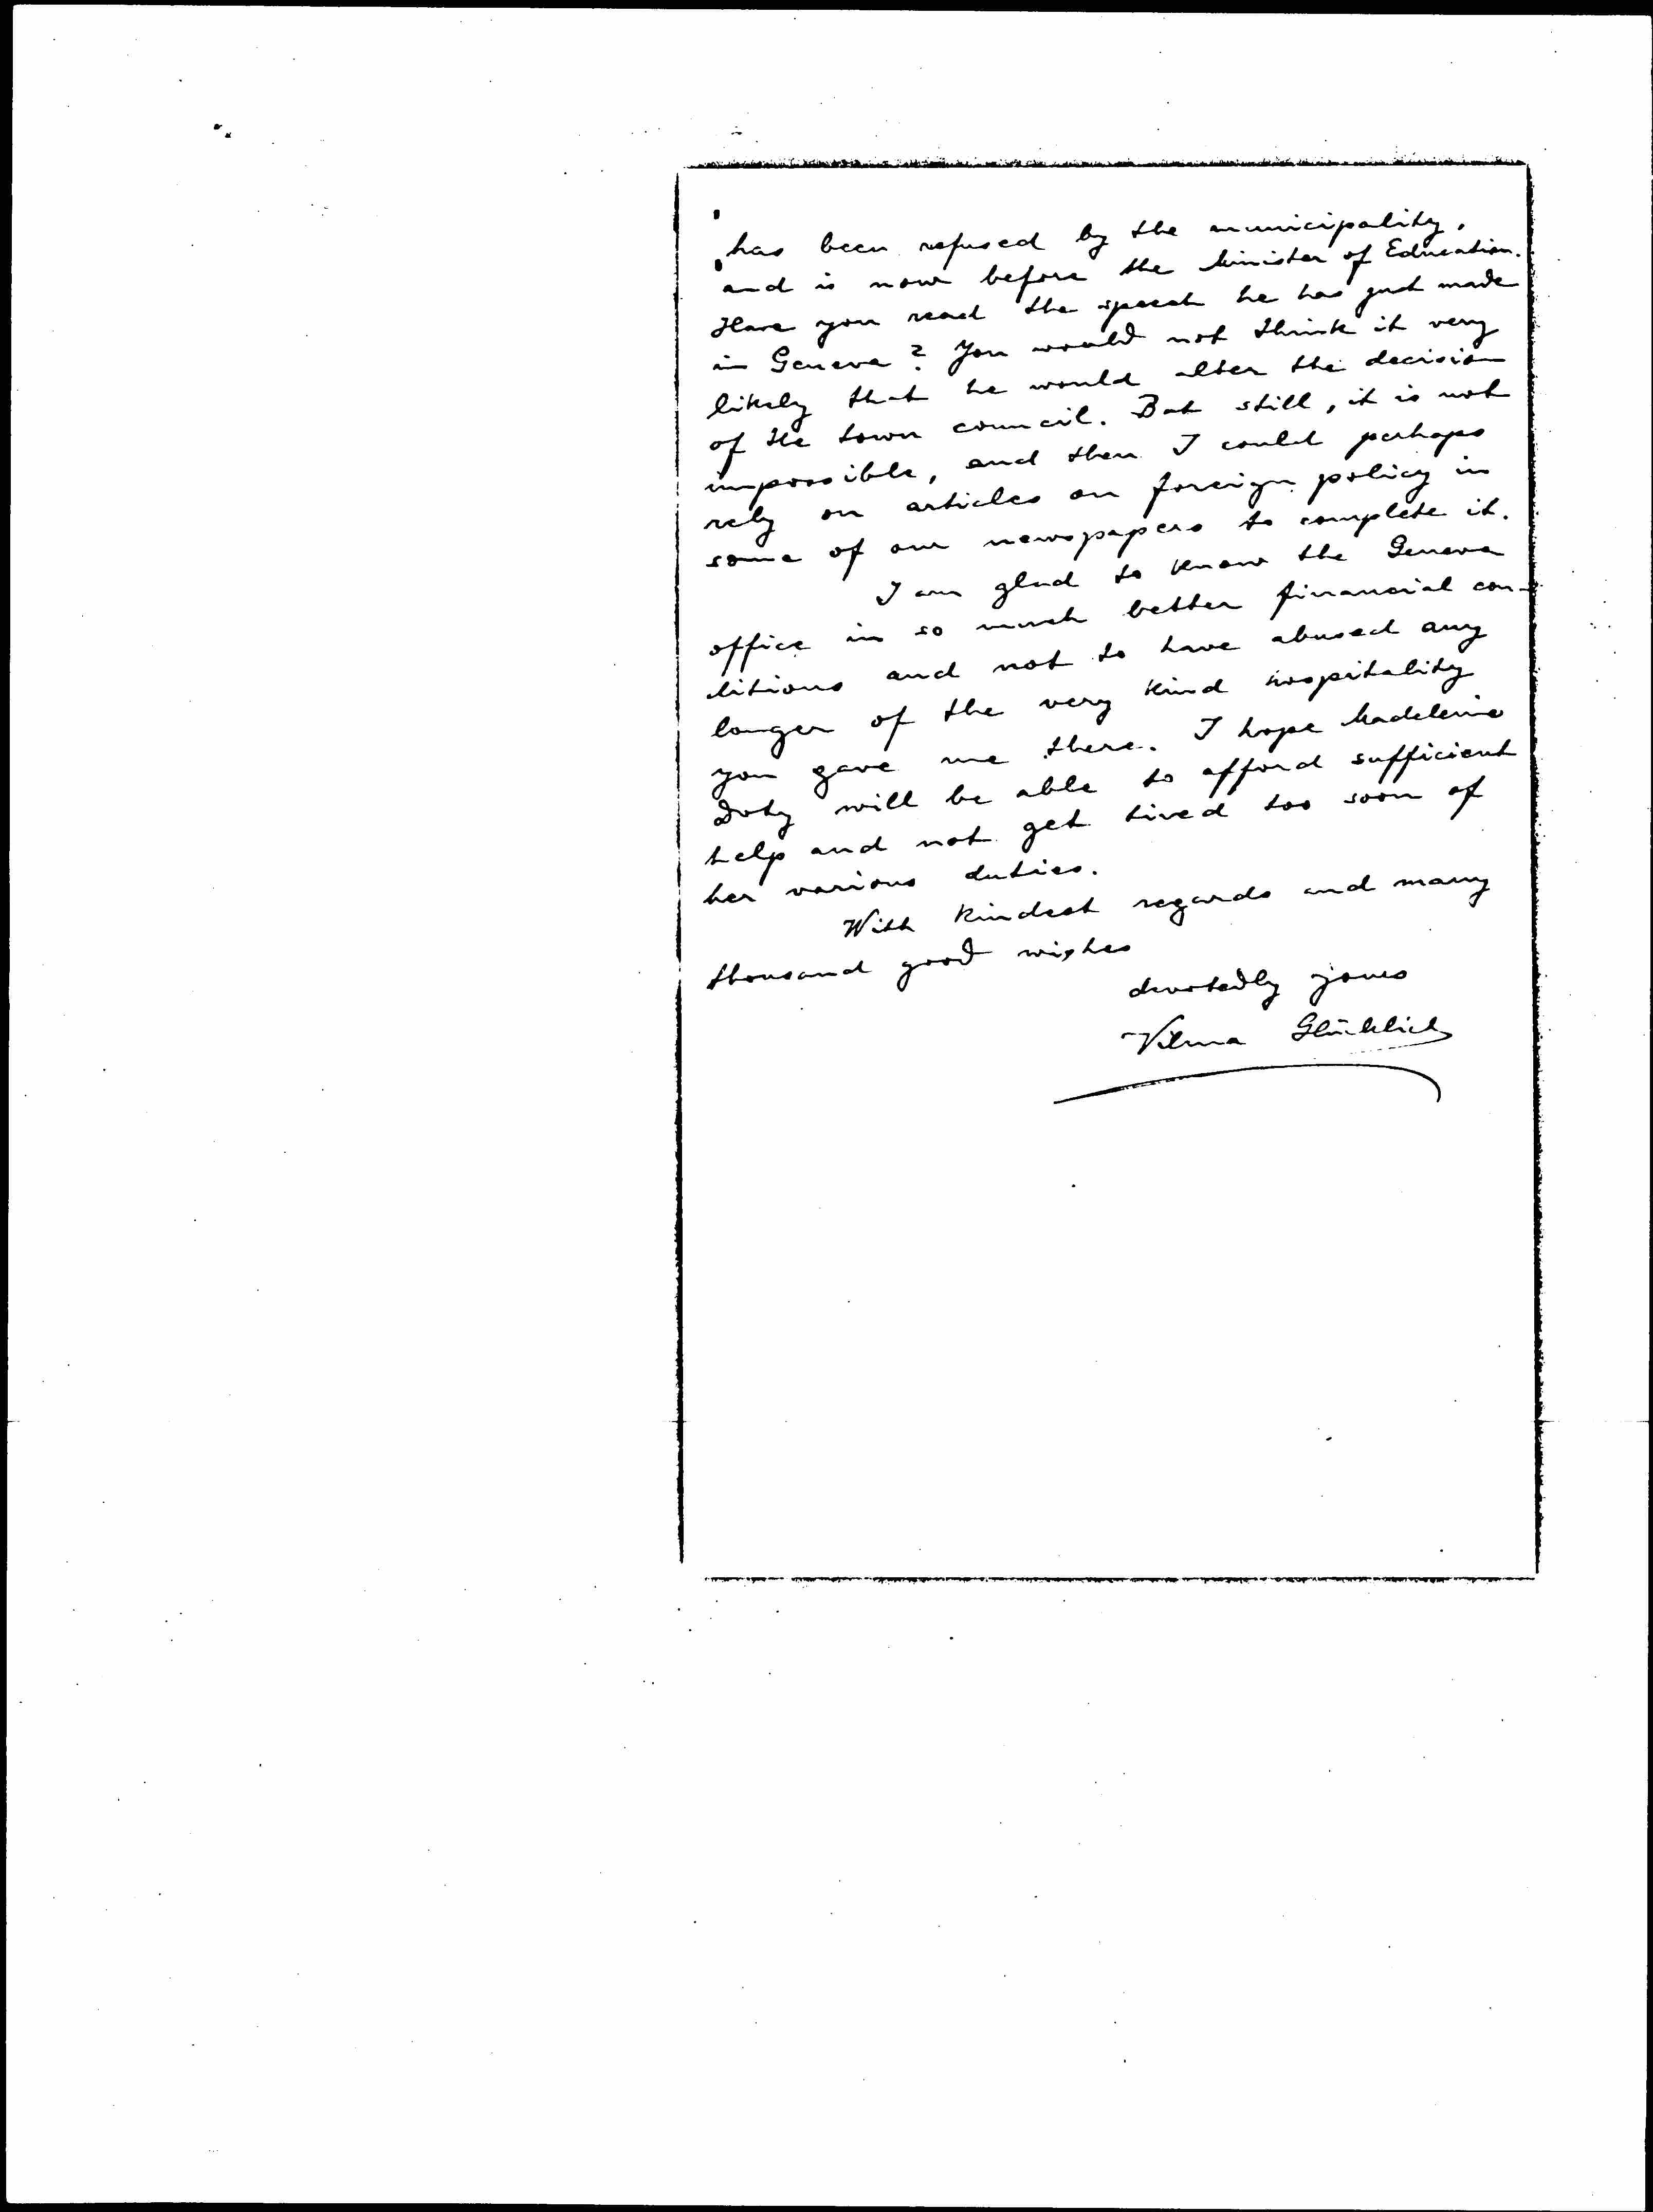 has been refused by the municipality,
and is now before the Minister of Education.
Have you read the speech he has just made
in Geneva? You would not think it very
likely that he would alter the decision
of the town council. But still, it is not
impossible, and then I could perhaps
rely on articles on foreign policy in
some of our newspapers to complete it.
I am glad to know the Geneva
office in so much better financial con-
ditions and not to have abused any
longer of the very kind hospitality
you gave me there. I hope Madeleine
Doty will be able to afford sufficient
help and not get tired too soon of
her various duties.
With kindest regards and many
thousand good wishes
devotedly yours
Vilma Glücklich